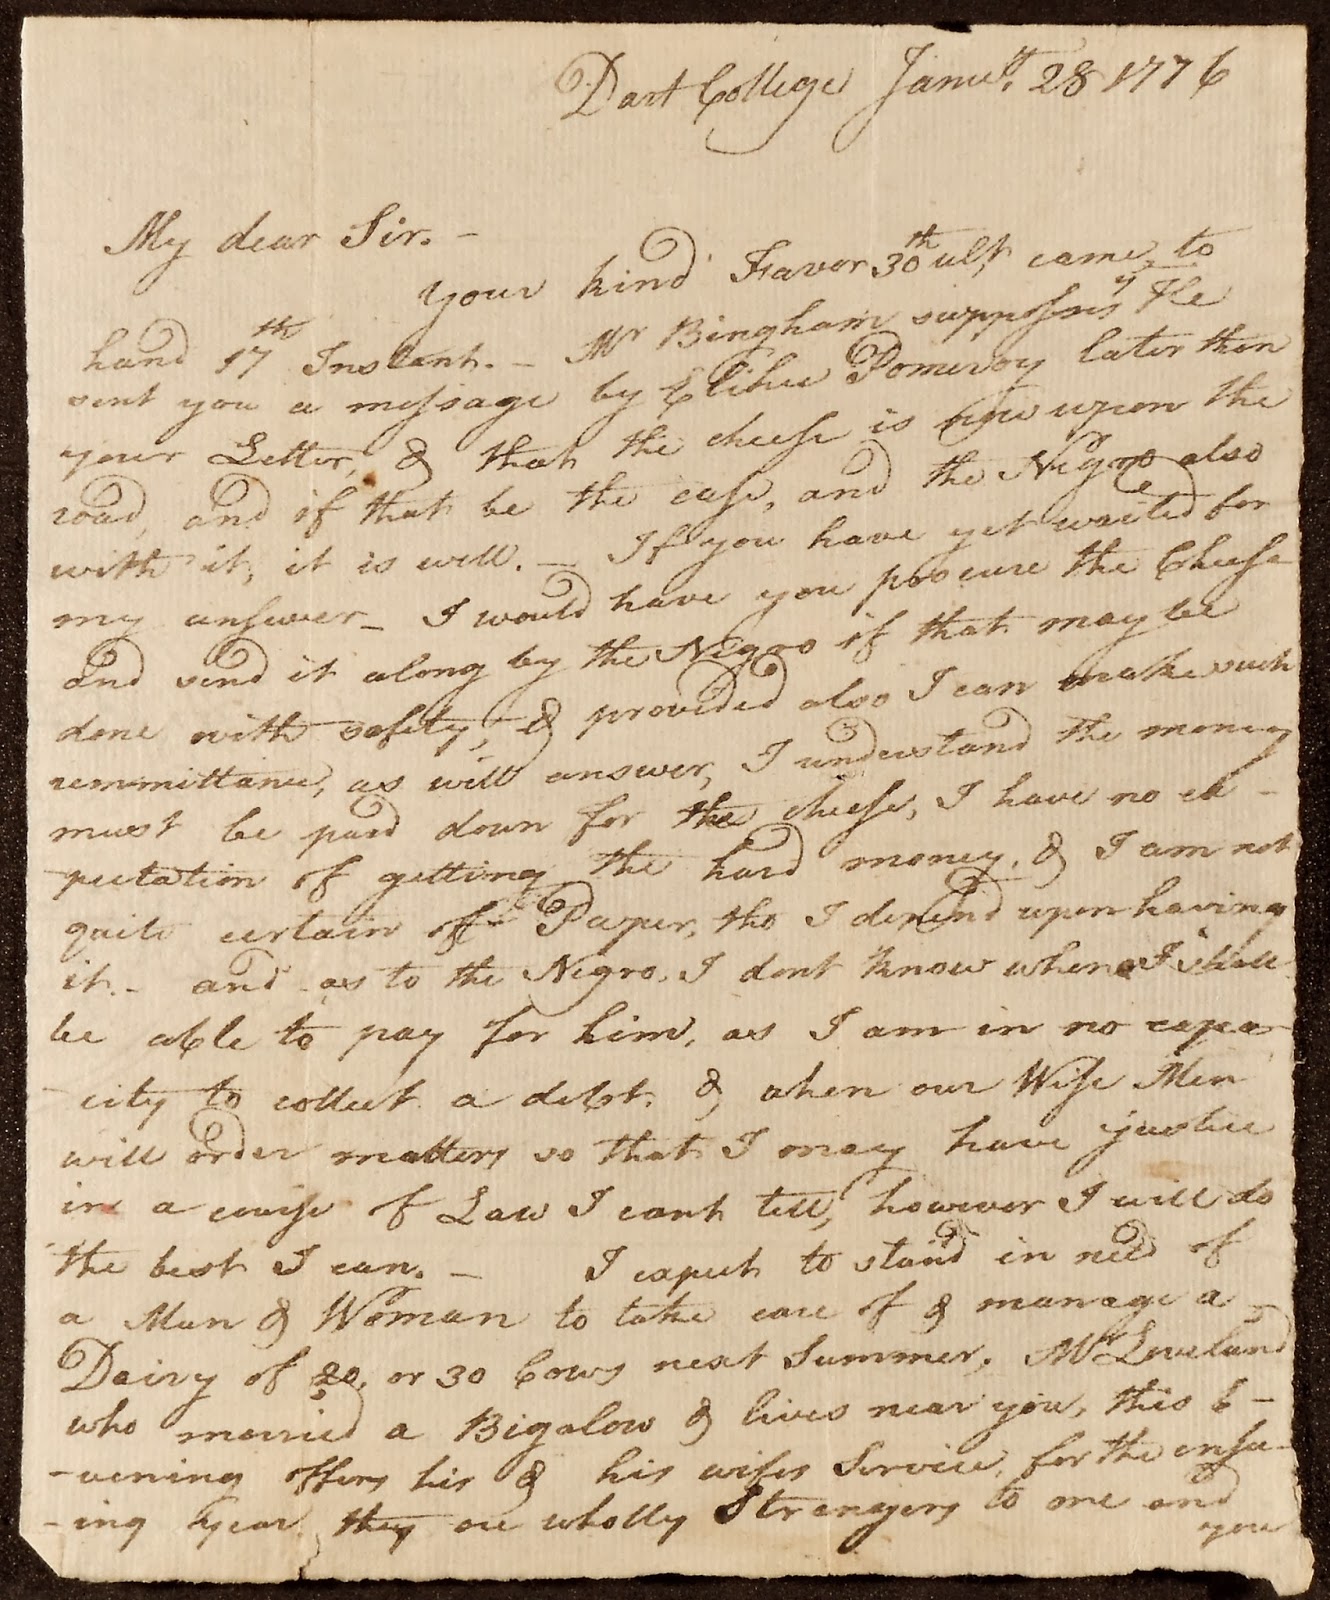 Dart College Janu.ʸ 28 1776
My dear Sir. –
your kind Favor 30th ult, came to
hand 17th Instant. – Mr Bingham supposes yt He
sent you a message by Elihu Pomeroy later than
your Letter, & that the cheese is now upon the
road, and if that be the case, and the Negro also
with it, it is well. – If you have yet waited for
my answer – I would have you procure the Cheese
and send it along by the Negro if that may be
done with safety, & provided also I can make such
remmittance, as will answer, I understand the money
must be paid down for the cheese, I have no ex-
-pectation of getting the hard money, & I am not
quite certain of Paper, tho I depend upon having
it. – and as to the Negro, I dont know when I shall
be able to pay for him, as I am in no capa
-city to collect a debt, & when our Wise Men
will order matters so that I may have justice
in a course of Law I cant tell, however I will do
the best I can. – I expect to stand in need of
a Man & Woman to take care of & manage a
Dairy of 20, or 30 Cows next Summer. Mr Loveland
who married a Bigalow & lives near you, this E-
-vening offers his & his wifes Service, for the ensu-
-ing year, they are wholly Strangers to me and
you